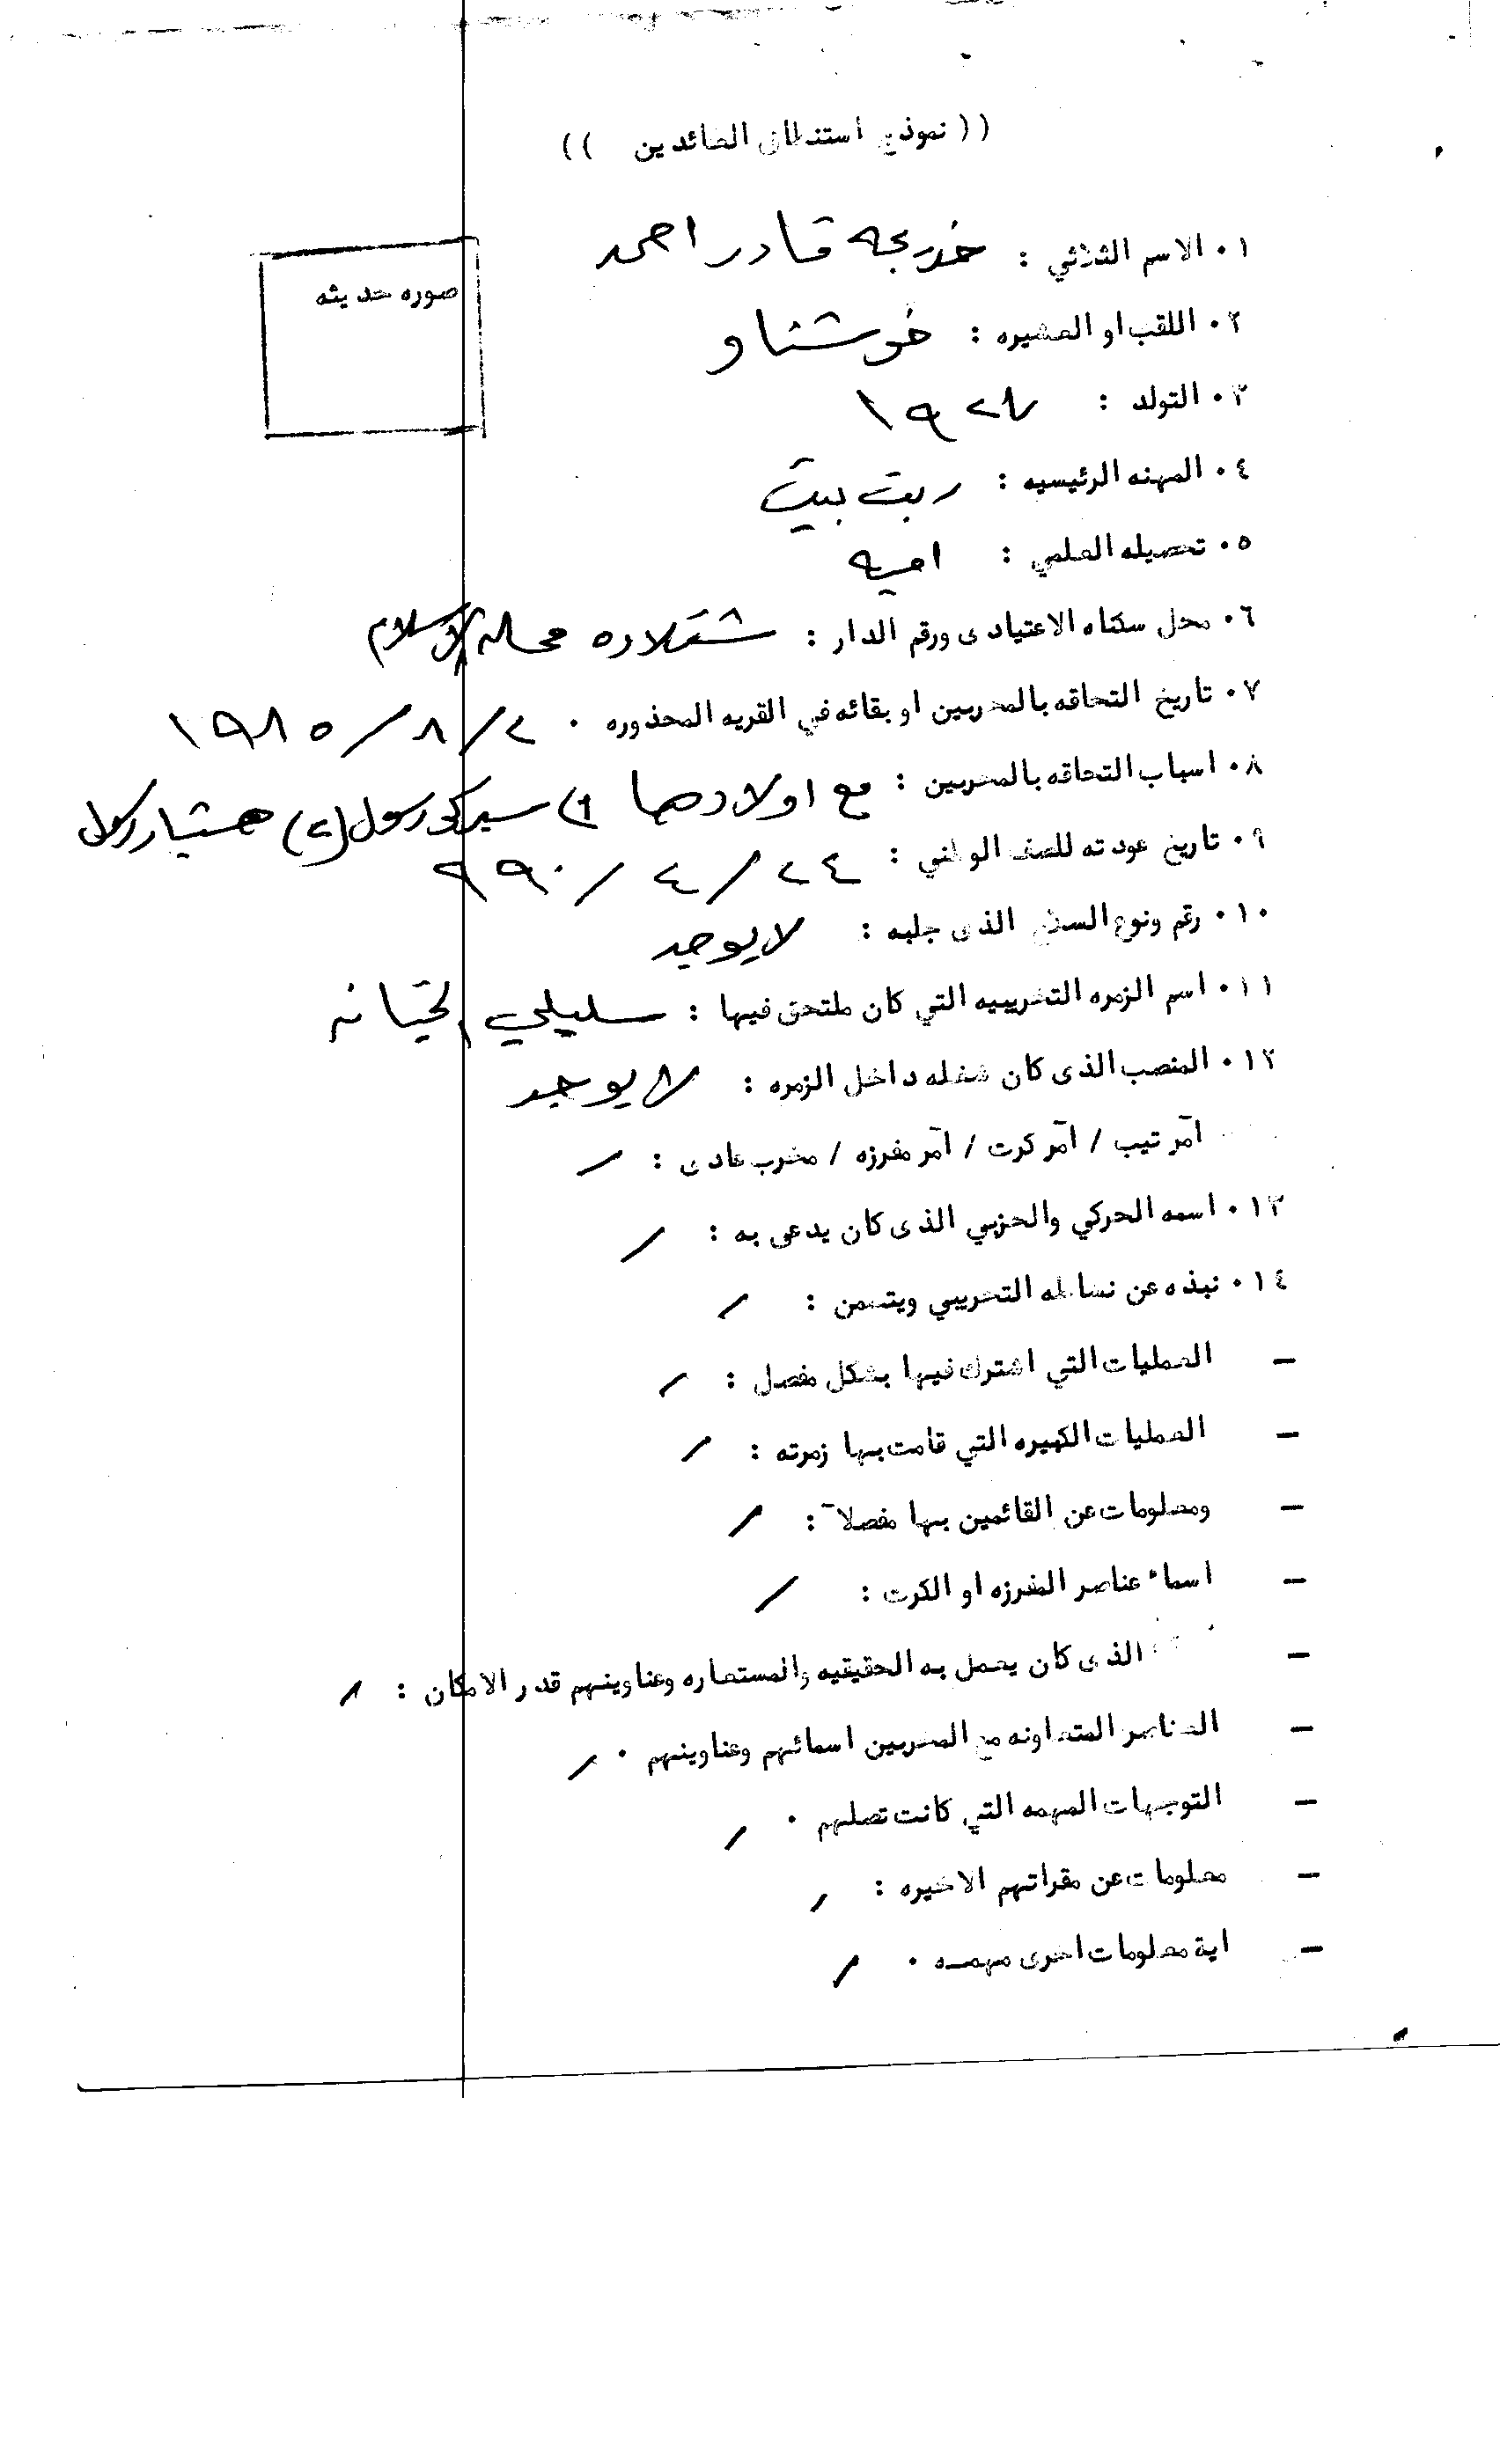 (( نموذج استنطاق العائدين ))
صوره حديثه
١٠ الاسم الثلاثي : خديجه قادر احمد
٢٠ اللقب او العشيره : خوشناو
٣٠ التولد : ١٩٢٨
٤٠ المهنه الرئيسيه : ربت بيت
٥٠ تحصيله العلمي : اميه
٦٠ محل سكناه الاعتيادى ورقم الدار : شقلاوه محله الاسلام
٧٠ تاريخ التحاقه بالمخربين او بقائه في القريه المحذوره ٠ ٢/٨/١٩٨٥
٨٠ اسباب التحاقه بالمخربين : مع اولادها ١) سيركى رسول (٢) هشيار رسول
٩٠ تاريخ عودته للصف الوطني : ٢٤/٤/٩٩٠
١٠٠ رقم ونوع السلاح الذى جلبه : لا يوجد
١١٠ اسم الزمره التخريبيه التي كان ملتحق فيها : سليلي الخيانه
١٢٠ المنصب الذى كان شغله داخل الزمره : لا يوجد
آمر تيب / آمر كرت / آمر مفرزه / مخرب عادى : /
١٣٠ اسمه الحركي والحزبي الذى كان يدعى به : /
١٤٠ نبذه عن نشاطه التخريبي ويتضمن : /
— العمليات التي اشترك فيها بشكل مفصل : /
— العمليات الكبيره التي قامت بها زمرته : /
— ومعلومات عن القائمين بها مفصلا ً : /
— اسماء عناصر المفرزه او الكرت : /
— الذى كان يعمل به الحقيقيه والمستعاره وعناوينهم قدر الامكان : /
— العناصر المتعاونه مع المخربين اسمائهم وعناوينهم ٠ /
— التوجيهات المهمه التي كانت تصلهم ٠ /
— معلومات عن مقراتهم الاخيره : /
— اية معلومات اخرى مهمه ٠ /